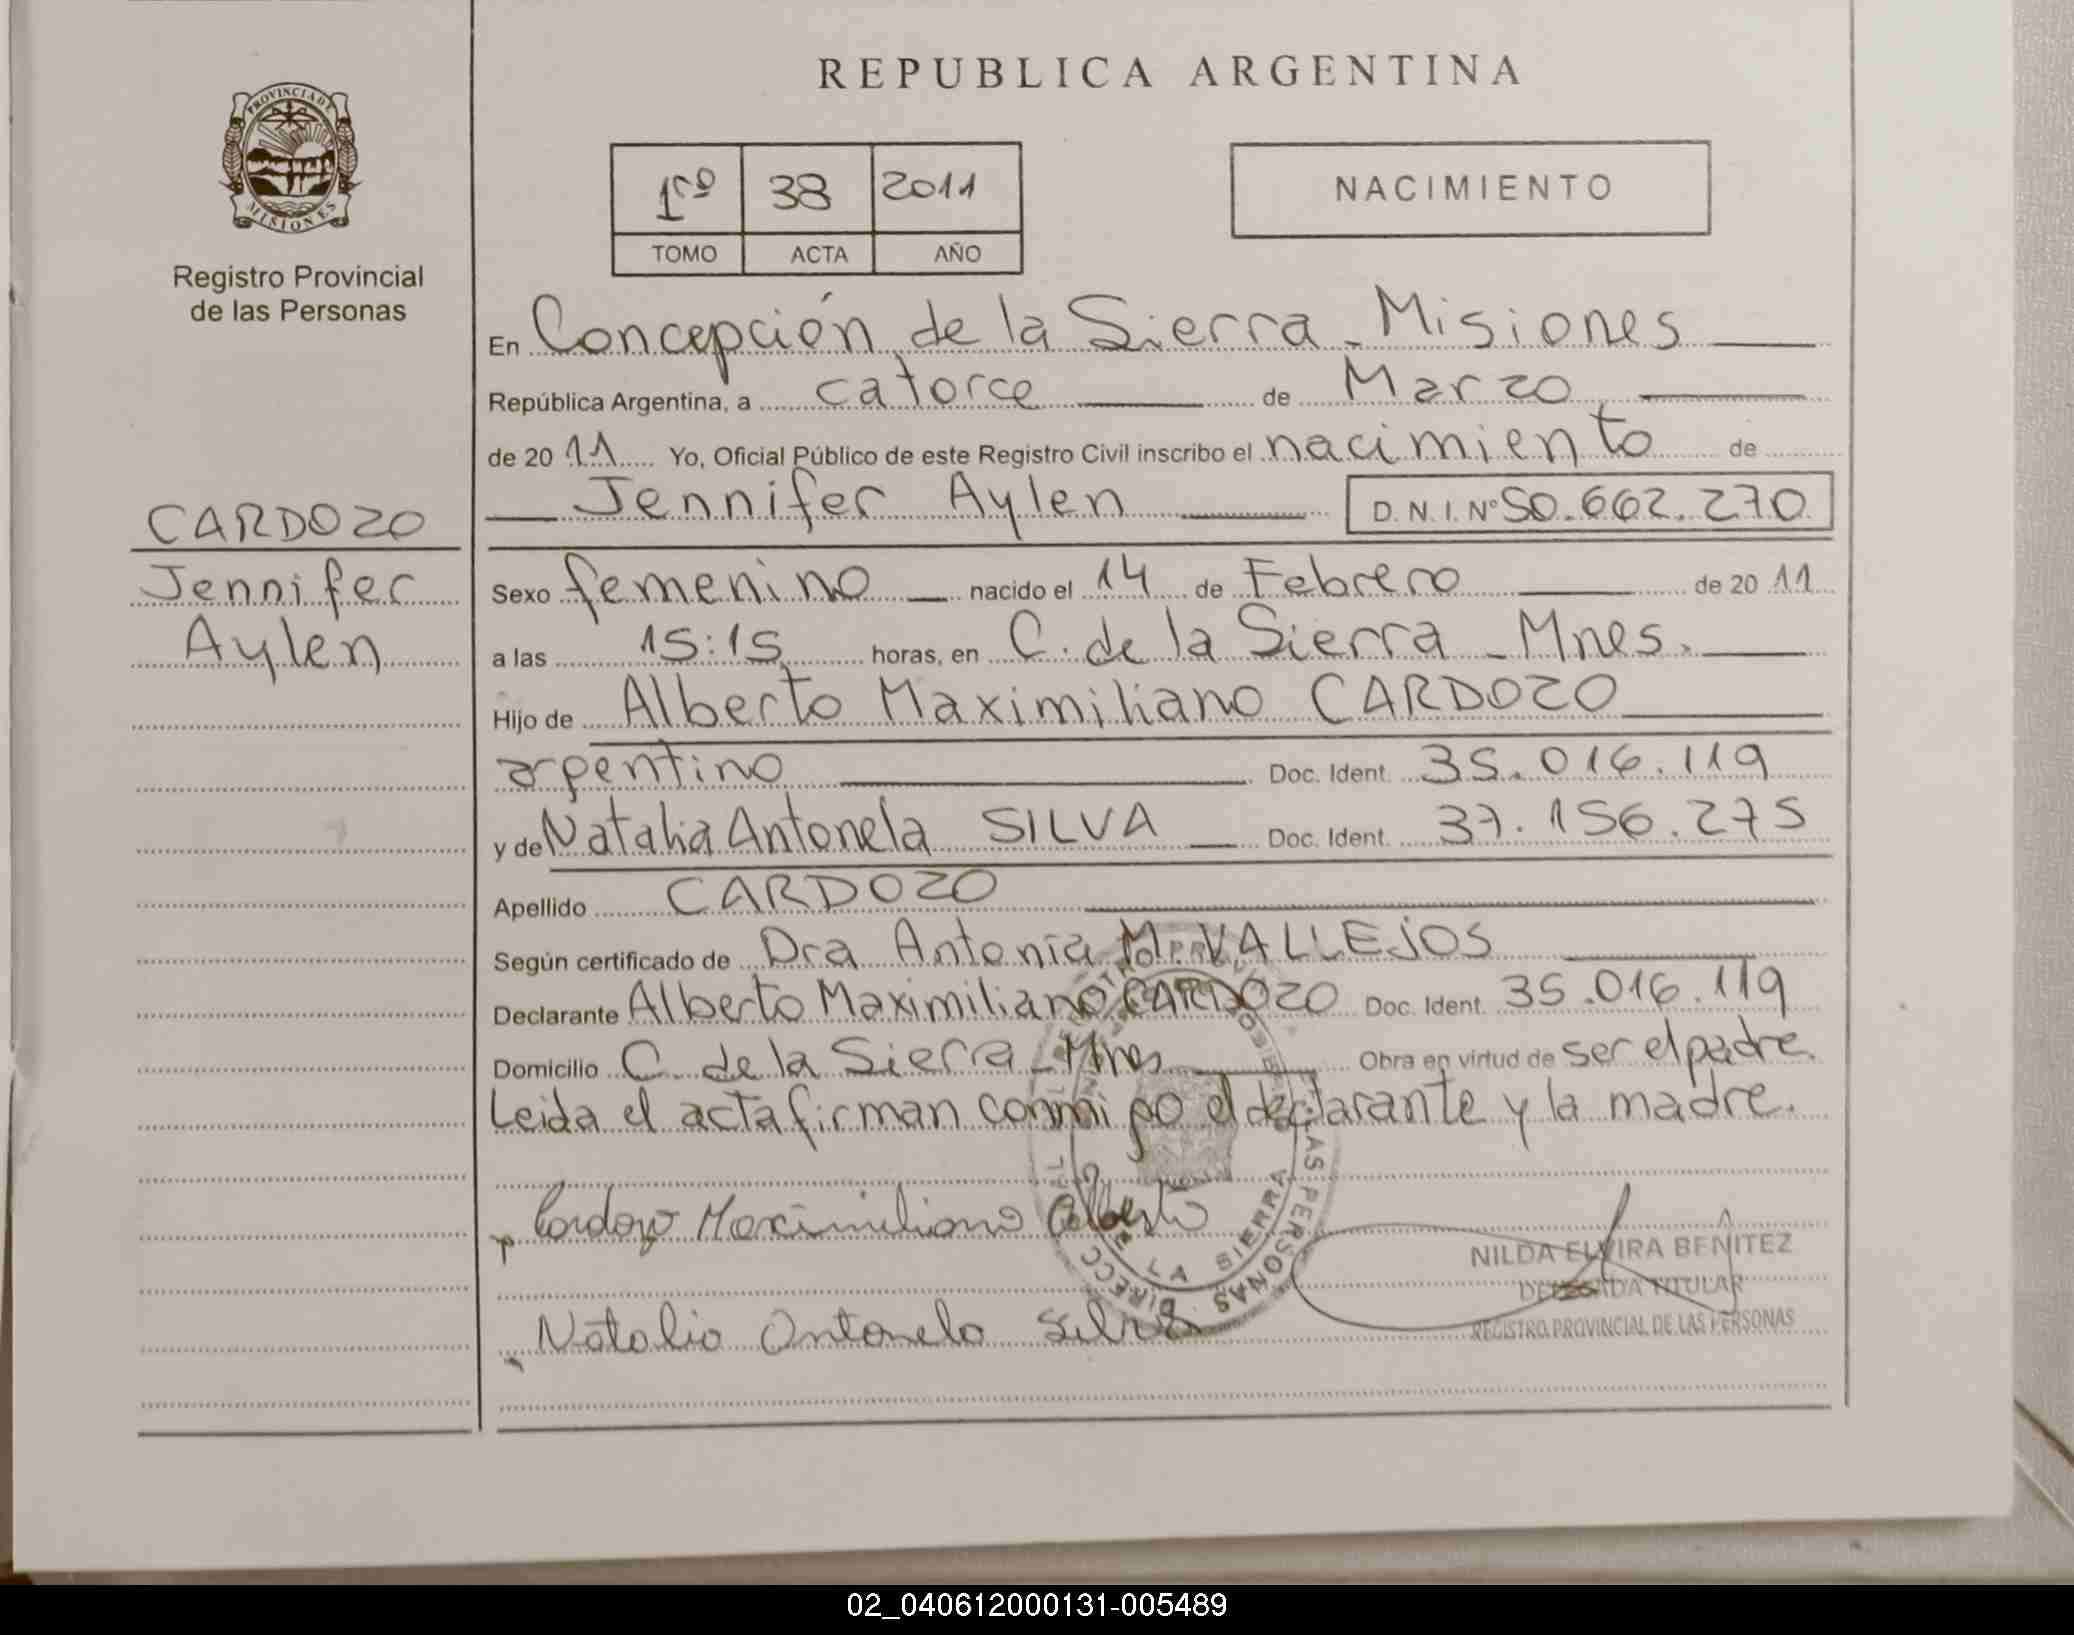 REPUBLICA ARGENTINA
PROVINCIA DE
MISIONES
Registro Provincial
de las Personas
1rº 38 2011
TOMO ACTA AÑO
NACIMIENTO
En Concepción de la Sierra - Misiones
República Argentina, a catorce de Marzo
de 2011 Yo, Oficial Público de este Registro Civil inscribo el nacimiento de
Jennifer Aylen D.N.I. Nº 50.662.270
CARDOZO
Jennifer
Aylen
Sexo femenino nacido el 14 de Febrero de 2011
a las 15:15 horas, en C. de la Sierra - Mnes.
Hijo de Alberto Maximiliano CARDOZO
argentino Doc. Ident. 35.016.119
y de Natalia Antonela SILVA Doc. Ident. 37.156.275
Apellido CARDOZO
Según certificado de Dra Antonia M. VALLEJOS
Declarante Alberto Maximiliano CARDOZO Doc. Ident. 35.016.119
Domicilio C. de la Sierra - Mnes Obra en virtud de ser el padre.
Leida el acta firman conmigo el declarante y la madre.
Cardozo Maximiliano Alberto
Natalia Antonela Silva
NILDA ELVIRA BENITEZ
DELEGADA TITULAR
REGISTRO PROVINCIAL DE LAS PERSONAS
LA SIERRA
02_040612000131-005489